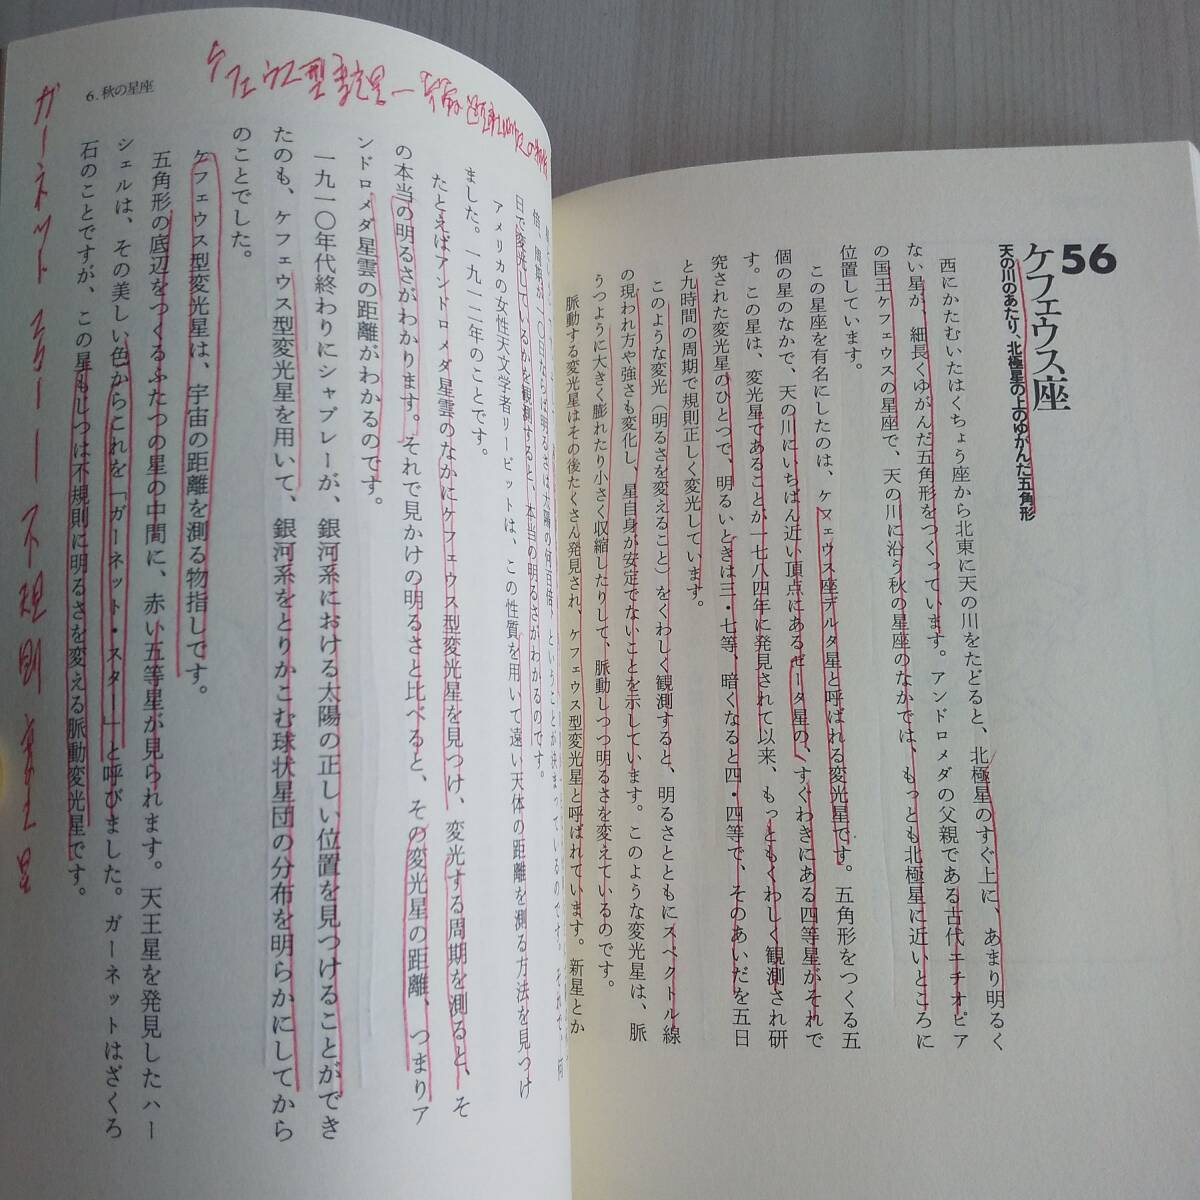 56
ケフェウス座
天の川のあたり、北極星の上のゆがんだ五角形
西にかたむいたはくちょう座から北東に天の川をたどると、北極星のすぐ上に、あまり明るく
ない星が、細長くゆがんだ五角形をつくっています。アンドロメダの父親である古代エチオピア
の国王ケフェウスの星座で、天の川に沿う秋の星座のなかでは、もっとも北極星に近いところに
位置しています。
この星座を有名にしたのは、ケフェウス座デルタ星と呼ばれる変光星です。五角形をつくる五
個の星のなかで、天の川にいちばん近い頂点にあるゼータ星の、すぐわきにある四等星がそれで
す。この星は、変光星であることが一七八四年に発見されて以来、もっともくわしく観測され研
究された変光星のひとつで、明るいときは三・七等、暗くなると四・四等で、そのあいだを五日
と九時間の周期で規則正しく変光しています。
このような変光（明るさを変えること）をくわしく観測すると、明るさとともにスペクトル線
の現われ方や強さも変化し、星自身が安定でないことを示しています。このような変光星は、脈
うつように大きく膨れたり小さく収縮したりして、脈動しつつ明るさを変えているのです。
脈動する変光星はその後たくさん発見され、ケフェウス型変光星と呼ばれています。新星とか
6. 秋の星座
ケフェウス型変光星
倍、周期が一〇日ならば明るさは太陽の何百倍、ということが決まっているのです。それで、何
日で変光しているかを観測すると、本当の明るさがわかるのです。
アメリカの女性天文学者リービットは、この性質を用いて遠い天体の距離を測る方法を見つけ
ました。一九一二年のことです。
たとえばアンドロメダ星雲のなかにケフェウス型変光星を見つけ、変光する周期を測ると、そ
の本当の明るさがわかります。それで見かけの明るさと比べると、その変光星の距離、つまりア
ンドロメダ星雲の距離がわかるのです。
一九一〇年代終わりにシャプレーが、銀河系における太陽の正しい位置を見つけることができ
たのも、ケフェウス型変光星を用いて、銀河系をとりかこむ球状星団の分布を明らかにしてから
のことでした。
ケフェウス型変光星は、宇宙の距離を測る物指しです。
五角形の底辺をつくるふたつの星の中間に、赤い五等星が見られます。天王星を発見したハー
シェルは、その美しい色からこれを「ガーネット・スター」と呼びました。ガーネットはざくろ
石のことですが、この星もじつは不規則に明るさを変える脈動変光星です。
ガーネットスター 不規則変光星